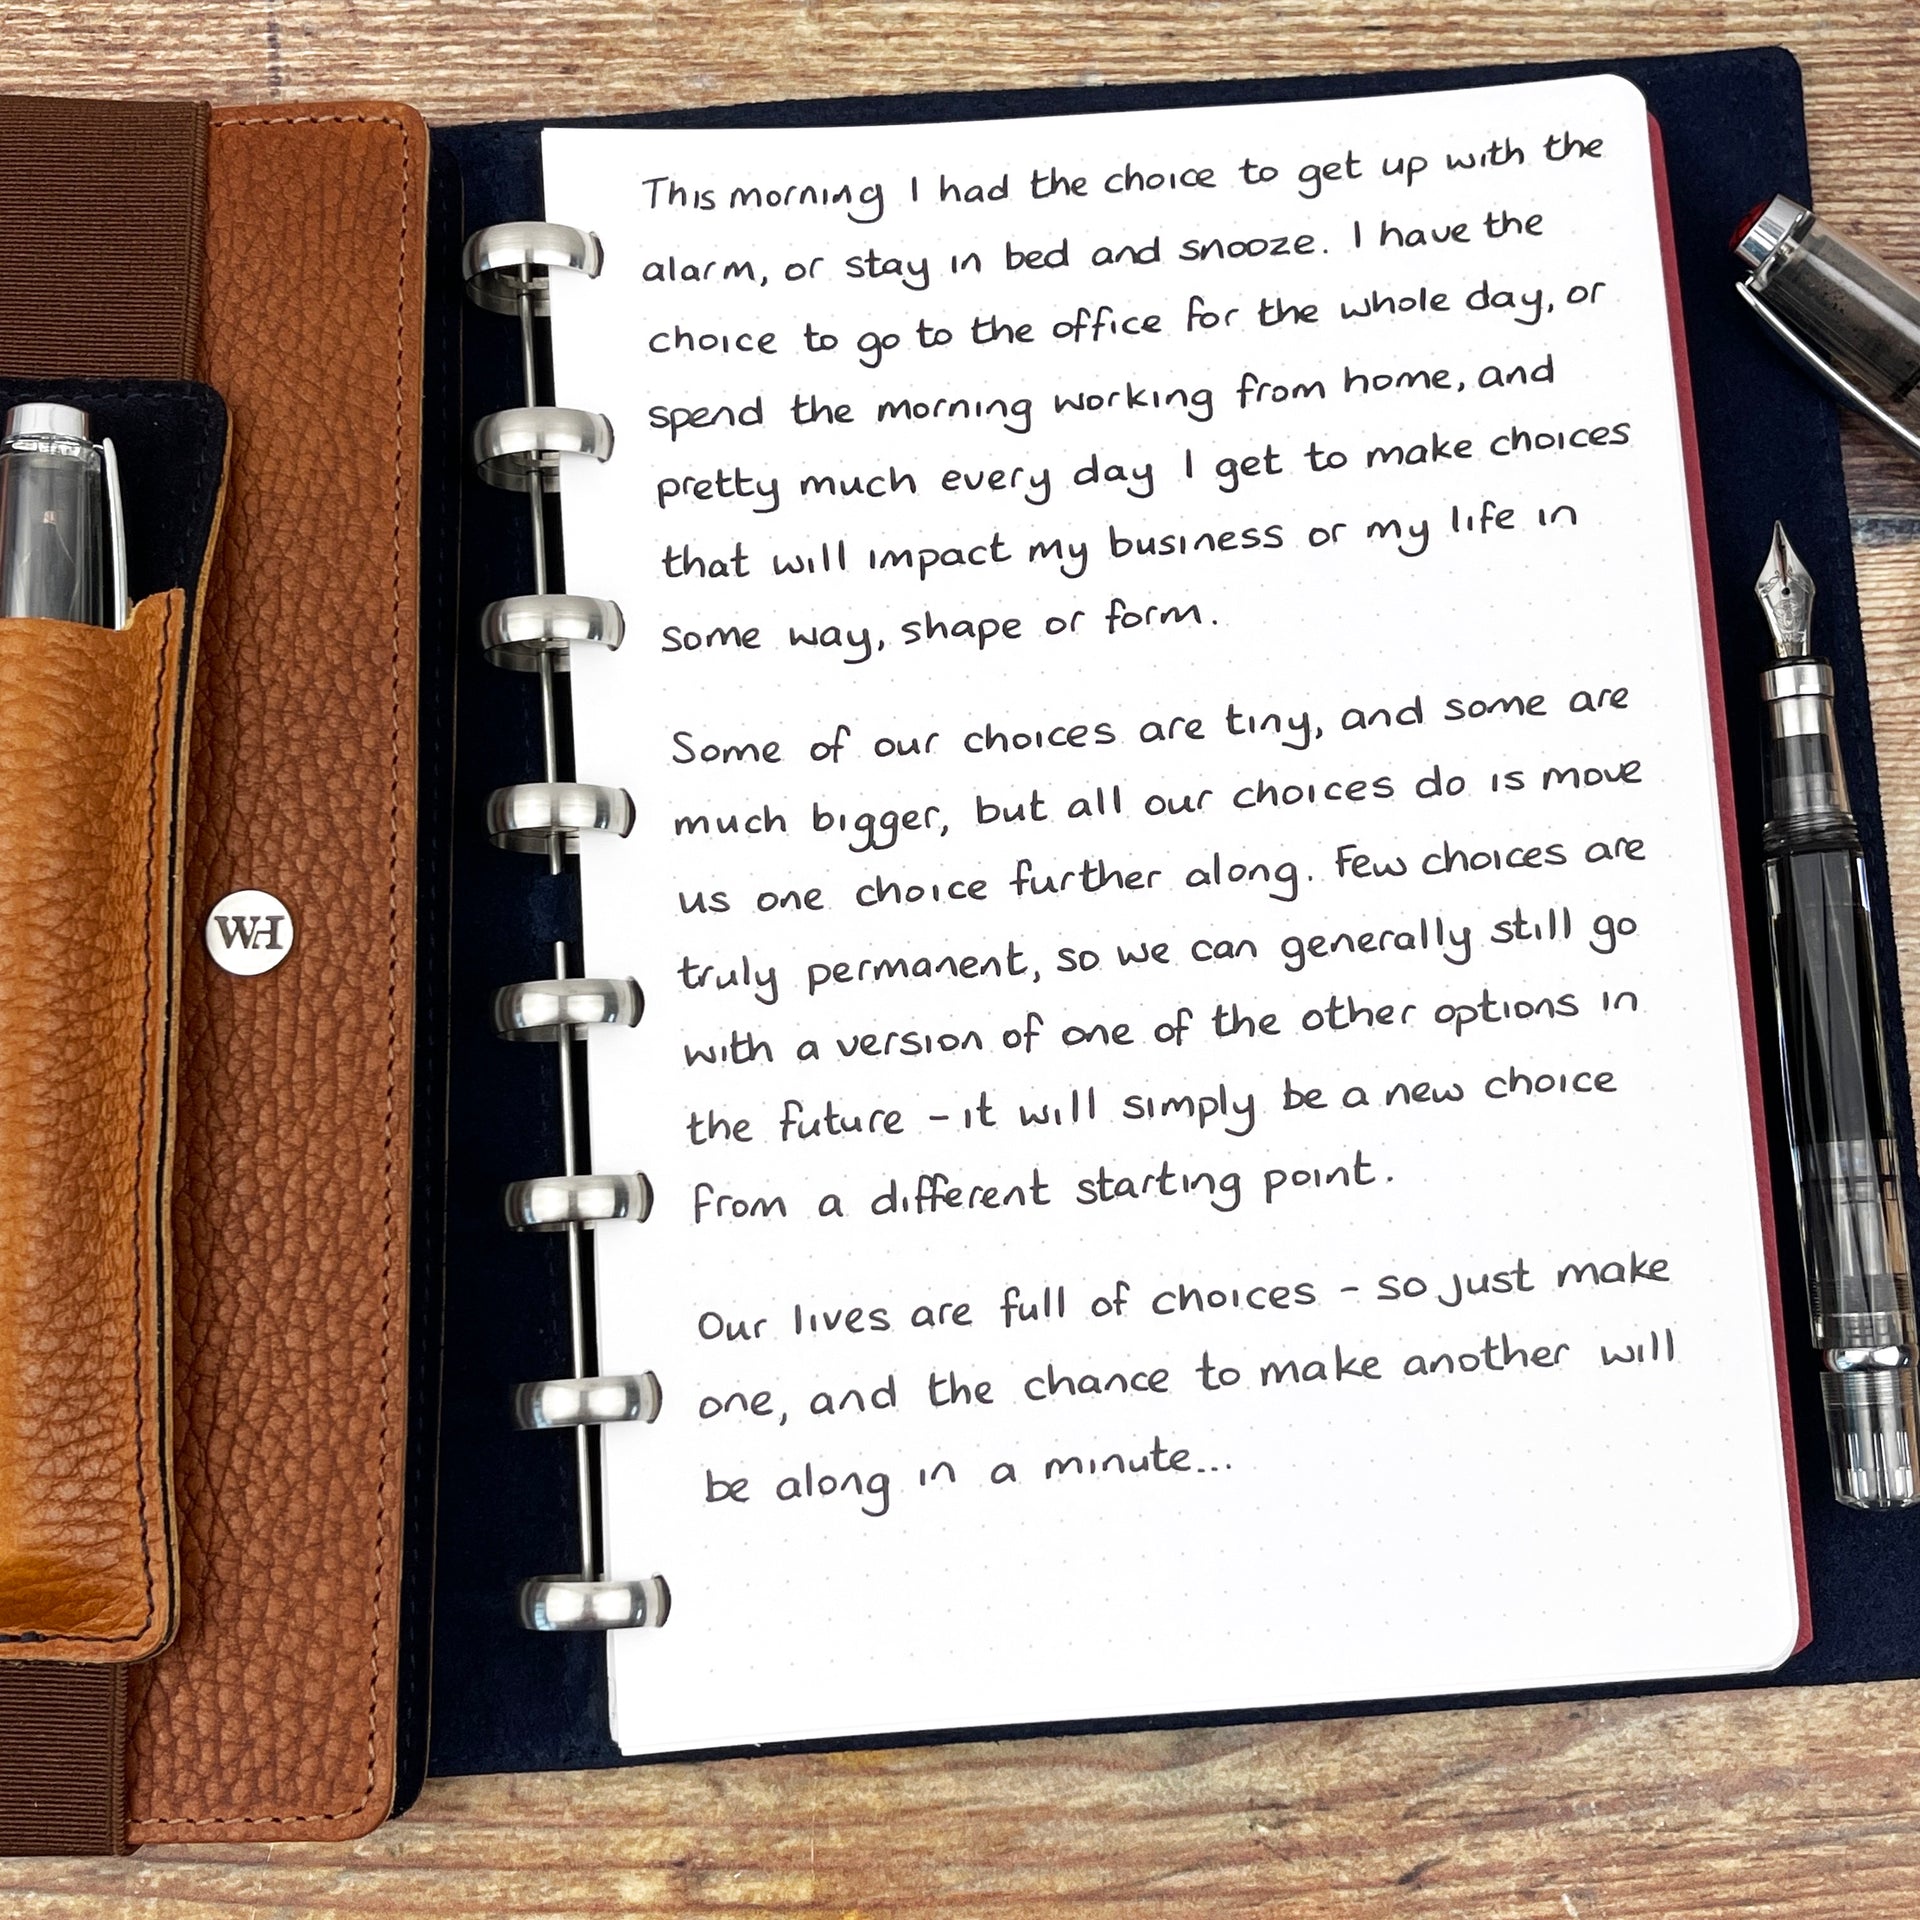 This morning I had the choice to get up with the
alarm, or stay in bed and snooze. I have the
choice to go to the office for the whole day, or
spend the morning working from home, and
pretty much every day I get to make choices
that will impact my business or my life in
some way, shape or form.
Some of our choices are tiny, and some are
much bigger, but all our choices do is move
us one choice further along. Few choices are
truly permanent, so we can generally still go
with a version of one of the other options in
the future - it will simply be a new choice
from a different starting point.
Our lives are full of choices - so just make
one, and the chance to make another will
be along in a minute...
WH